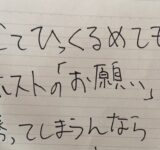 てひっくるめても
ホストの「お願い」
ってしまうんなら